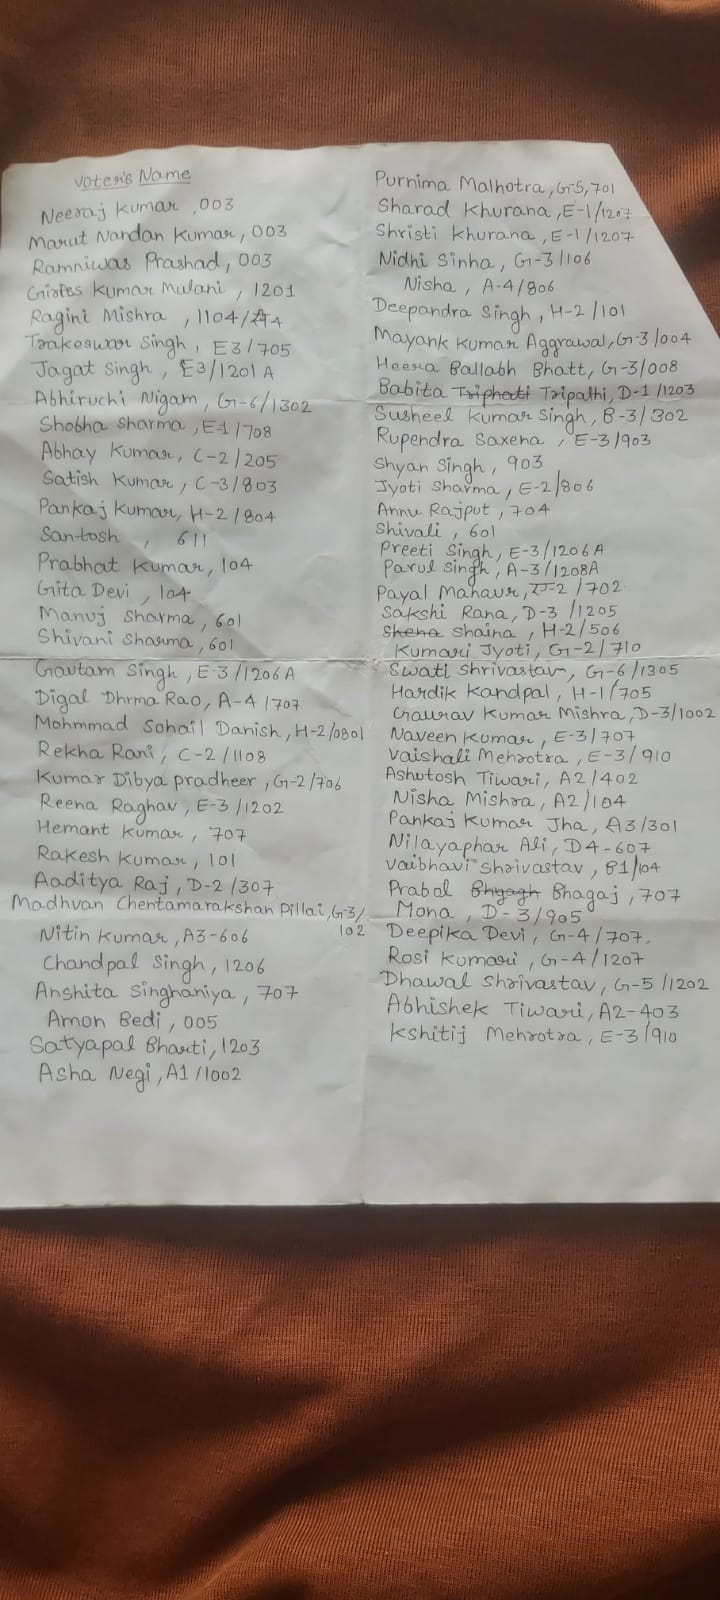 Voter's Name
Neeraj Kumar, 003
Marut Nandan Kumar, 003
Ramniwas Prashad, 003
Kumar Mulani, 1201
Ragini Mishra, 1104/
Trakeswar Singh, E3/705
Jagat Singh, E3/1201 A
Abhiruchi Nigam, G-6/1302
Shobha Sharma, E-1/708
Abhay Kumar, C-2/205
Satish Kumar, C-3/803
Pankaj Kumar, H-2/804
Santosh, 611
Prabhat Kumar, 104
Gita Devi, 104
Manuj Sharma, 601
Shivani Sharma, 601
Gautam Singh, E-3/1206 A
Digal Dhrma Rao, A-4/707
Mohmmad Sohail Danish, H-2/0801
Rekha Rani, C-2/1108
Kumar Dibya pradheer, G-2/706
Reena Raghav, E-3/1202
Hemant Kumar, 707
Rakesh Kumar, 101
Aaditya Raj, D-2/307
Madhvan Chentamarakshan Pillai, G-3/
102
Nitin Kumar, A3-606
Chandpal Singh, 1206
Anshita Singhaniya, 707
Amon Bedi, 005
Satyapal Bharti, 1203
Asha Negi, A1/1002
Purnima Malhotra, G-5, 701
Sharad Khurana, E-1/1207
Shristi Khurana, E-1/1207
Nidhi Sinha, G-3/106
Nisha, A-4/806
Deepandra Singh, H-2/101
Mayank Kumar Aggrawal, G-3/004
Heera Ballabh Bhatt, G-3/008
Babita Triphati Tripathi, D-1/1203
Susheel Kumar Singh, B-3/302
Rupendra Saxena, E-3/903
Shyan Singh, 903
Jyoti Sharma, E-2/806
Annu Rajput, 704
Shivali, 601
Preeti Singh, E-3/1206 A
Parul Singh, A-3/1208A
Payal Mahaur, एफ-2/702
Sakshi Rana, D-3/1205
Skena Shaina, H-2/506
Kumari Jyoti, G-2/710
Swati Shrivastav, G-6/1305
Hardik Kandpal, H-1/705
Gaurav Kumar Mishra, D-3/1002
Naveen Kumar, E-3/707
Vaishali Mehrotra, E-3/910
Ashutosh Tiwari, A2/402
Nisha Mishra, A2/104
Pankaj Kumar Jha, A3/301
Nilayaphar Ali, D4-607
Vaibhavi Shrivastav, B1/104
Prabal Bhagaj, 707
Mona, D-3/905
Deepika Devi, G-4/707.
Rosi Kumari, G-4/1207
Dhawal Shrivastav, G-5/1202
Abhishek Tiwari, A2-403
Kshitij Mehrotra, E-3/910